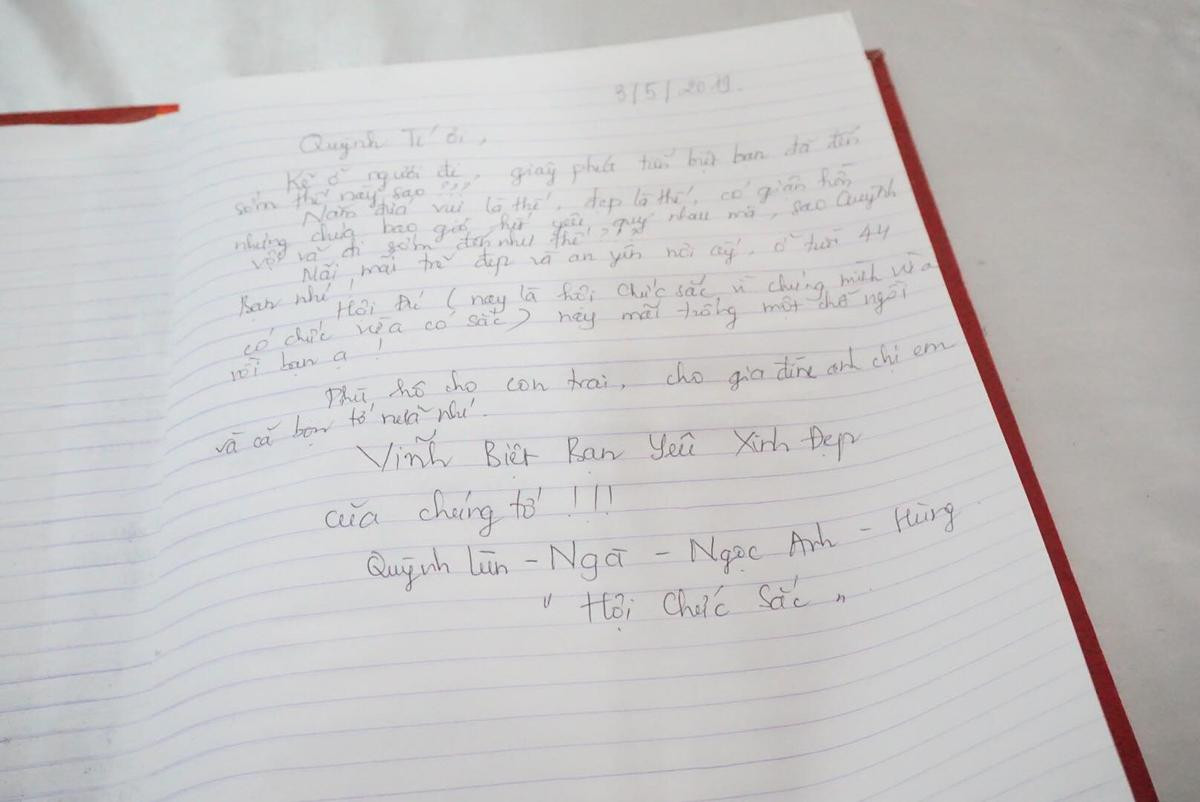 3/5/2019.
Quỳnh Tí ơi,
Kẻ ở người đi, giây phút tiễn biệt bạn đã đến
sớm thế này sao???
Năm đứa vui là thế, đẹp là thế, có giận hờn
nhưng chưa bao giờ hết yêu quý nhau mà, sao Quỳnh
vội vã đi sớm đến như thế?
Mãi mãi trẻ đẹp và an yên nơi ấy, ở tuổi 44
Bạn nhé!
Hội Đú (nay là hội chức sắc vì chúng mình vừa
có chức vừa có sắc) này mãi trống một chỗ ngồi
với bạn ạ!
Phù hộ cho con trai, cho gia đình anh chị em
và cả bọn tớ nữa nhé.
Vĩnh Biệt Bạn Yêu Xinh Đẹp
của chúng tớ !!!
Quỳnh lùn - Nga - Ngọc Anh - Hùng
"Hội Chức Sắc"